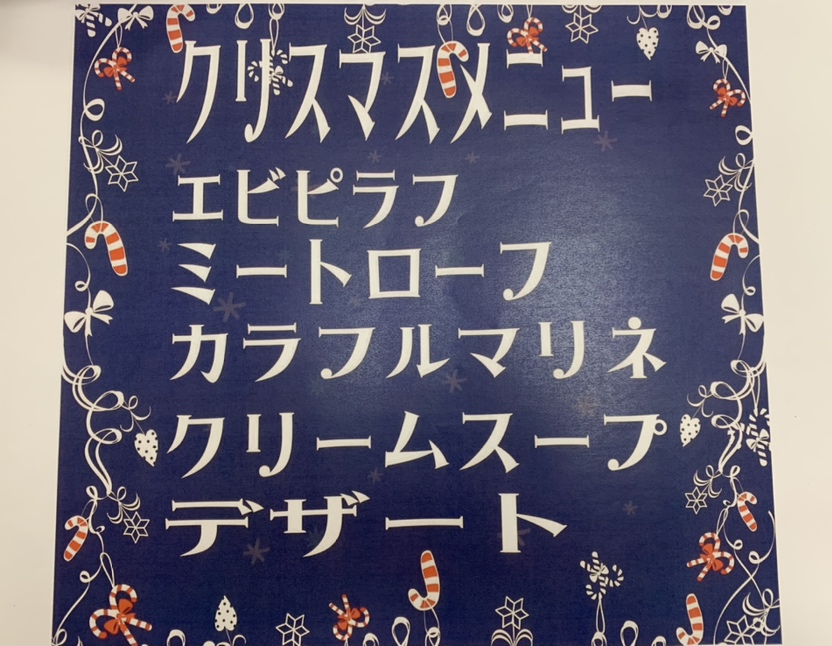 クリスマスメニュー
エビピラフ
ミートローフ
カラフルマリネ
クリームスープ
デザート